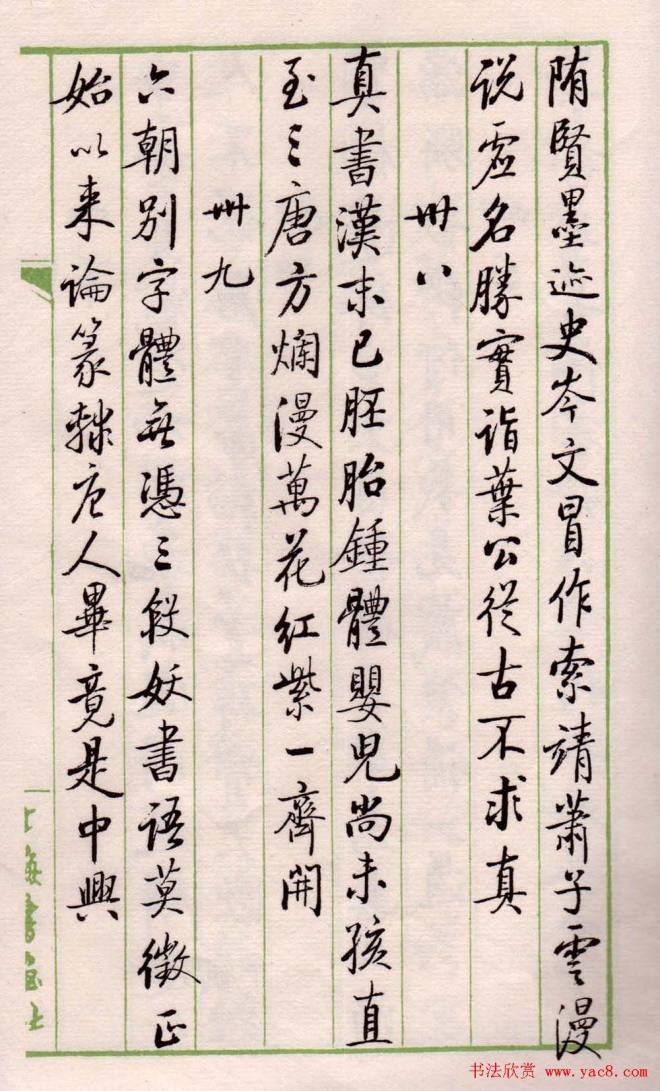 隋賢墨迹史岑文冒作索靖蕭子雲漫
说虚名勝實詣葉公從古不求真
卅八
真書漢末已胚胎鍾體嬰兒尚未孩直
至三唐方爛漫萬花紅紫一齊開
卅九
六朝别字體無憑三段妖書語莫徵正
始以来論篆隸唐人畢竟是中興
书法欣赏 http://www.yac8.com